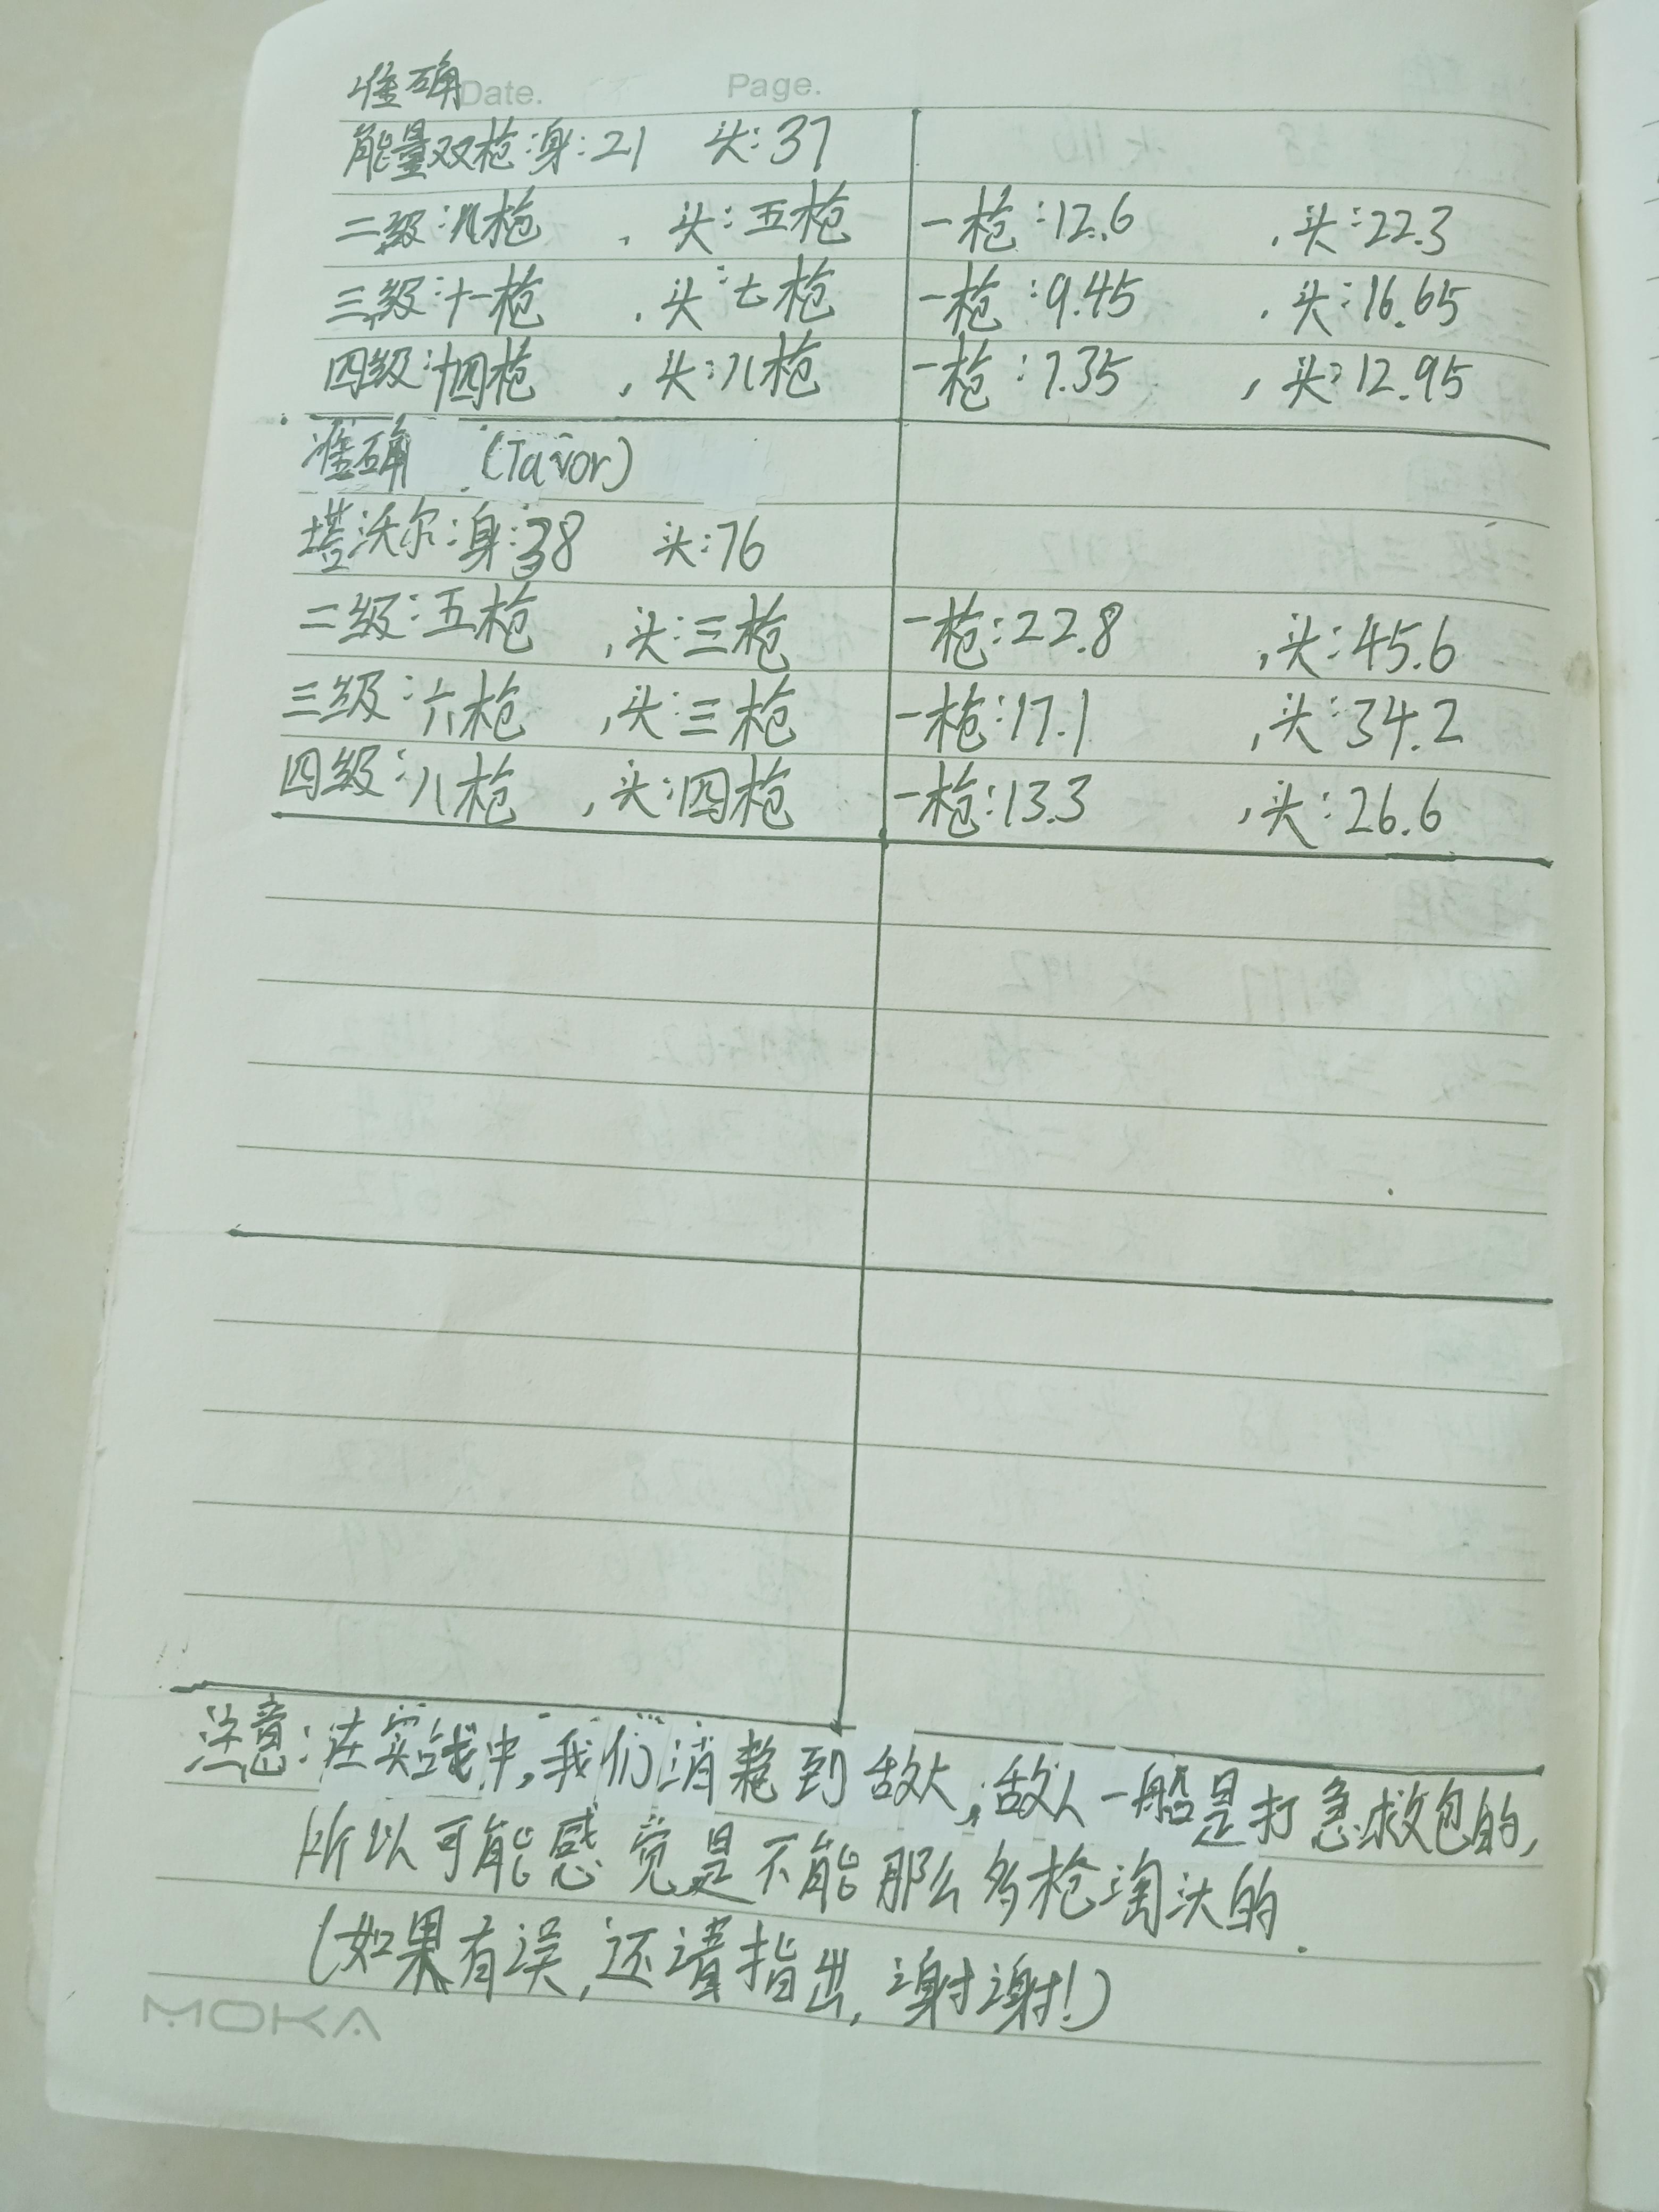 准确 Date. Page.
能量双枪:身:21 头:37
二级:八枪 , 头:五枪 一枪:12.6 , 头:22.3
三级:十一枪 , 头:七枪 一枪:9.45 , 头:16.65
四级:十四枪 , 头:八枪 一枪:7.35 , 头:12.95
准确 (Tavor)
塔沃尔:身:38 头:76
二级:五枪 , 头:三枪 一枪:22.8 , 头:45.6
三级:六枪 , 头:三枪 一枪:17.1 , 头:34.2
四级:八枪 , 头:四枪 一枪:13.3 , 头:26.6
注意:在实战中,我们消耗到敌人,敌人一般是打急救包的,
所以可能感觉是不能那么多枪淘汰的.
(如果有误,还请指出,谢谢!)
MOKA